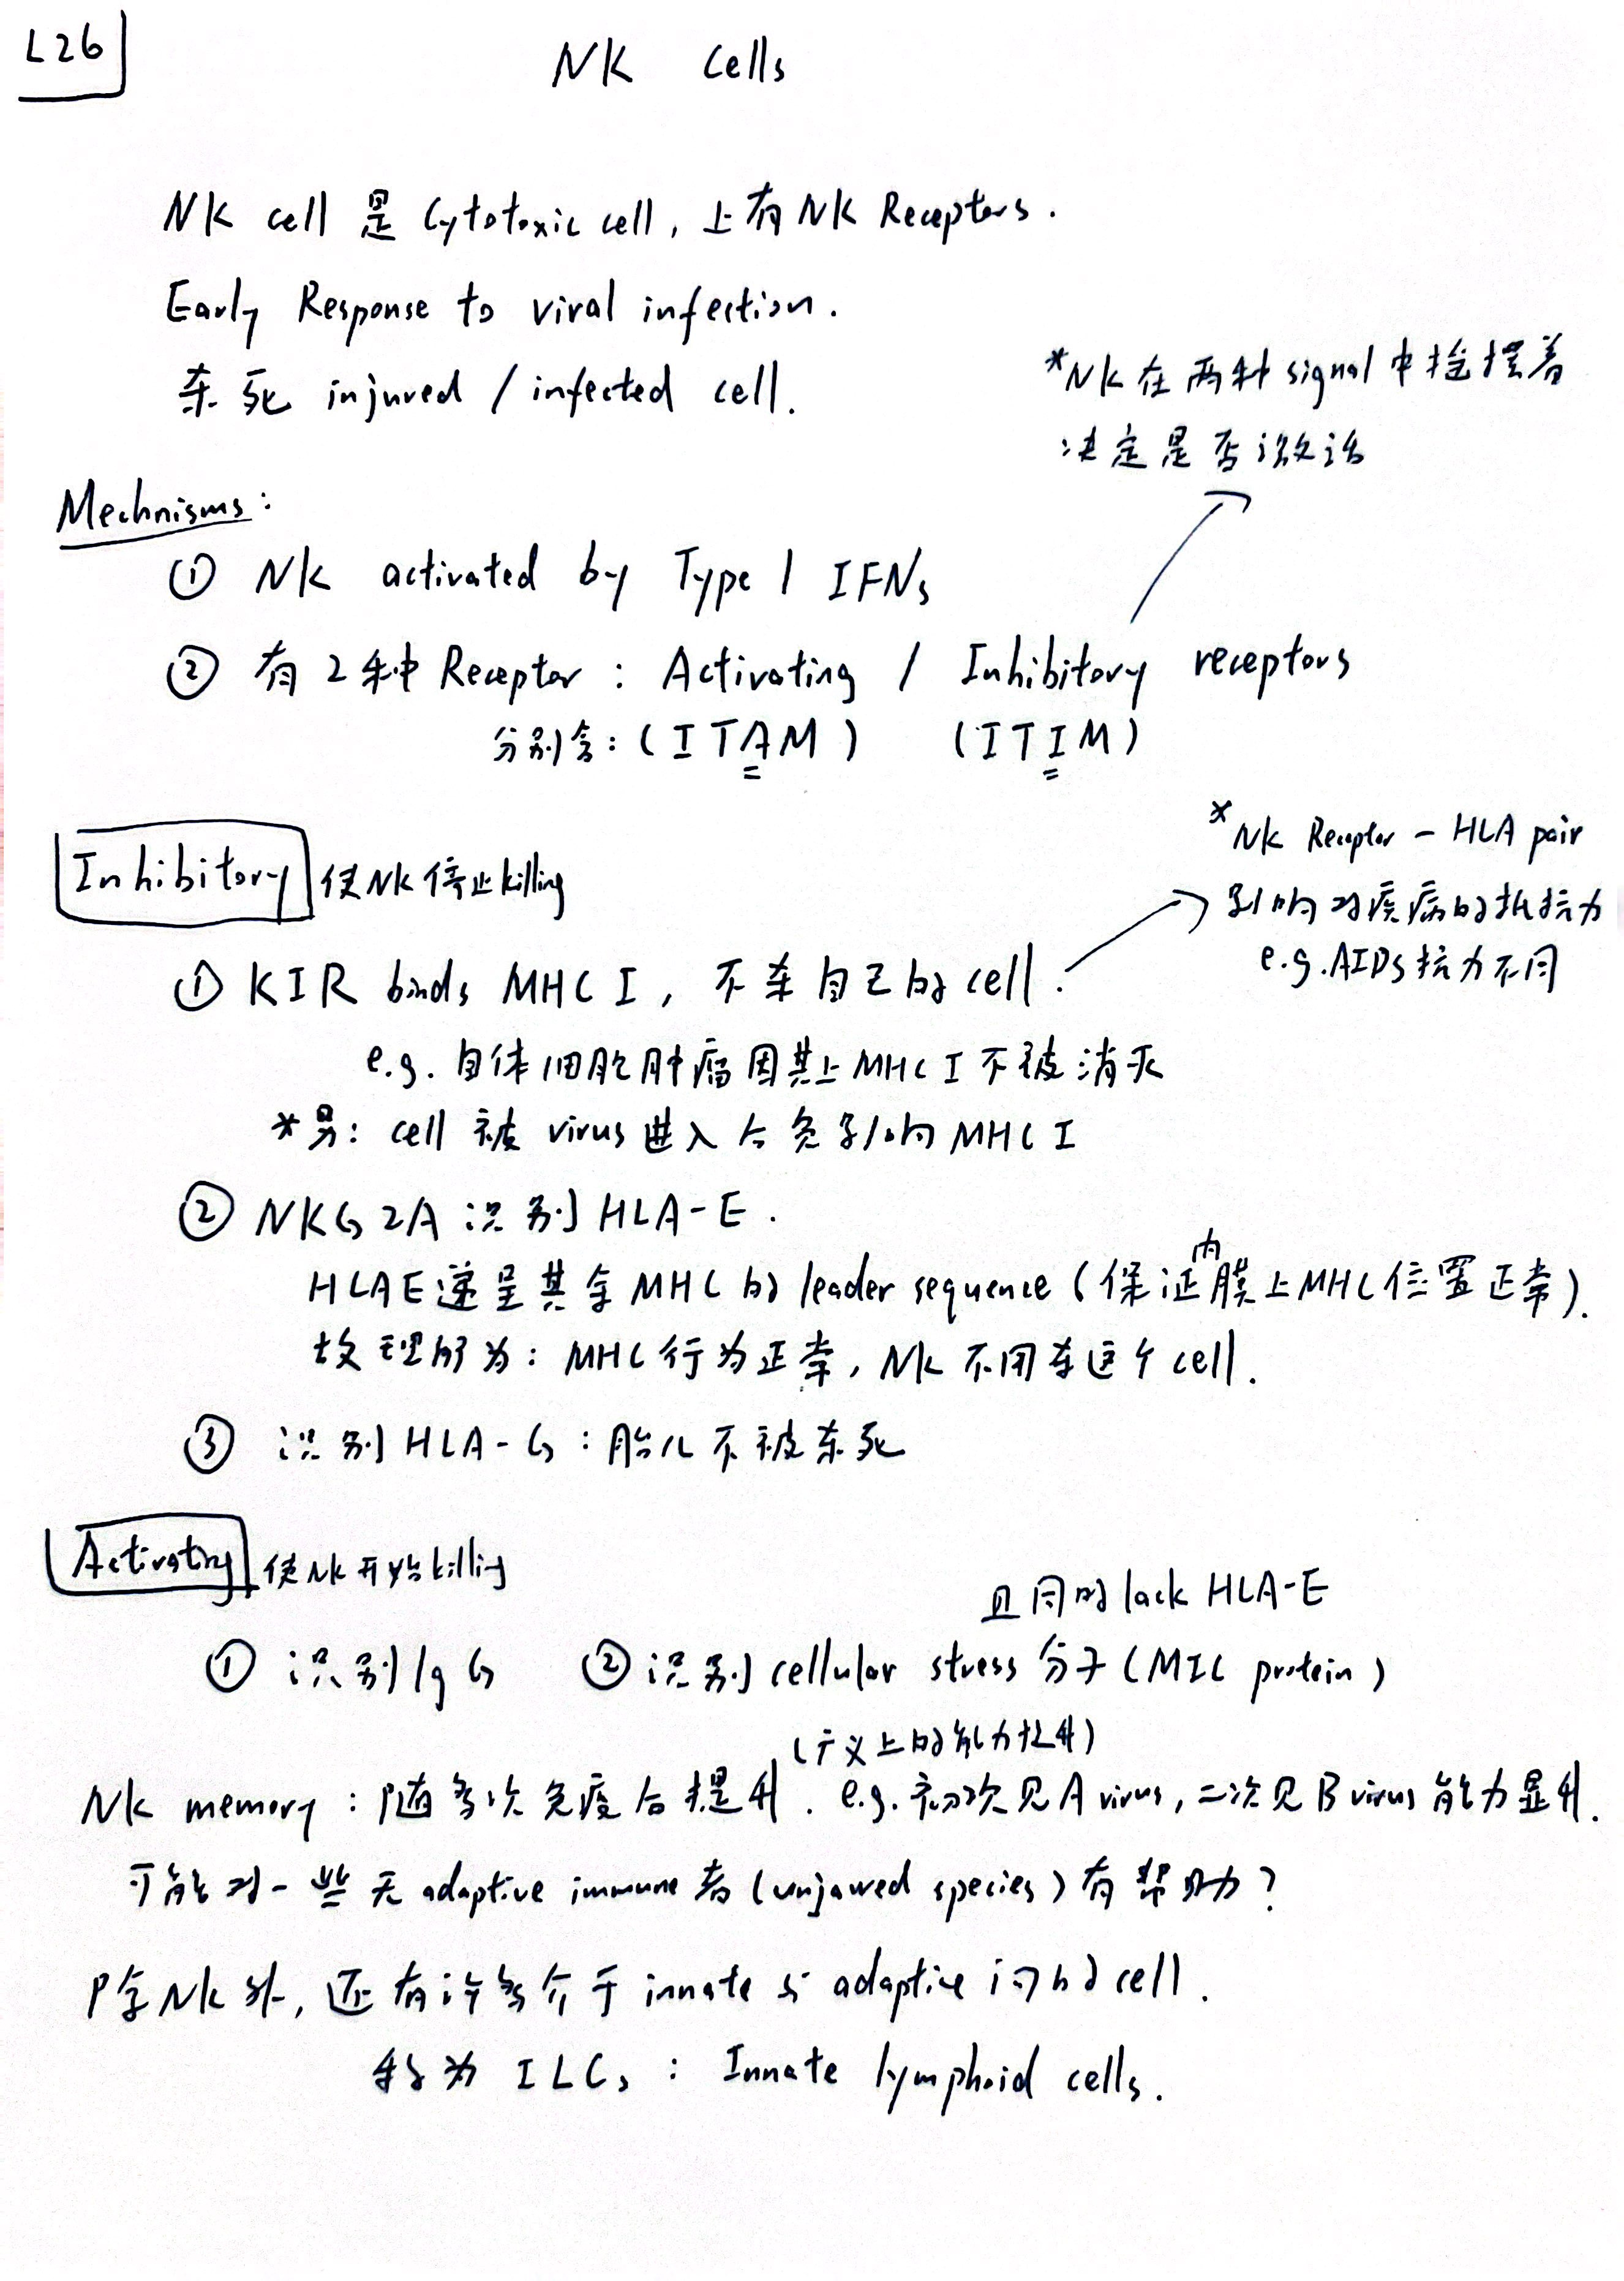 L26
NK Cells
NK cell 是 Cytotoxic cell, 上有 NK Receptors.
Early Response to viral infection.
杀死 injured / infected cell.
*NK 在两种 signal 中摇摆着
决定是否激活
Mechnisms:
① NK activated by Type 1 IFNs
② 有 2 种 Receptor : Activating / Inhibitory receptors
分别含: (ITAM) (ITIM)
Inhibitory 使NK停止killing
* NK Receptor - HLA pair
影响对疾病的抵抗力
e.g. AIDs 抗力不同
① KIR binds MHC I, 不杀自己的 cell.
e.g. 自体细胞肿瘤因其上 MHC I 不被消灭
*另: cell 被 virus 进入后会影响 MHC I
② NKG2A 识别 HLA-E.
HLAE递呈其余 MHC 的 leader sequence (保证内膜上MHC位置正常).
故理解为: MHC 行为正常, NK 不用杀这个 cell.
③ 识别 HLA-G : 胎儿不被杀死
Activating 使NK开始killing
且同时 lack HLA-E
① 识别 IgG ② 识别 cellular stress 分子 (MIC protein)
(广义上的能力提升)
NK memory : 随多次免疫后提升. e.g. 初次见 A virus, 二次见 B virus 能力显升.
可能对一些无 adaptive immune 者 (unjawed species) 有帮助?
除 NK 外, 还有许多介于 innate 与 adaptive 间的 cell.
称为 ILCs : Innate lymphoid cells.